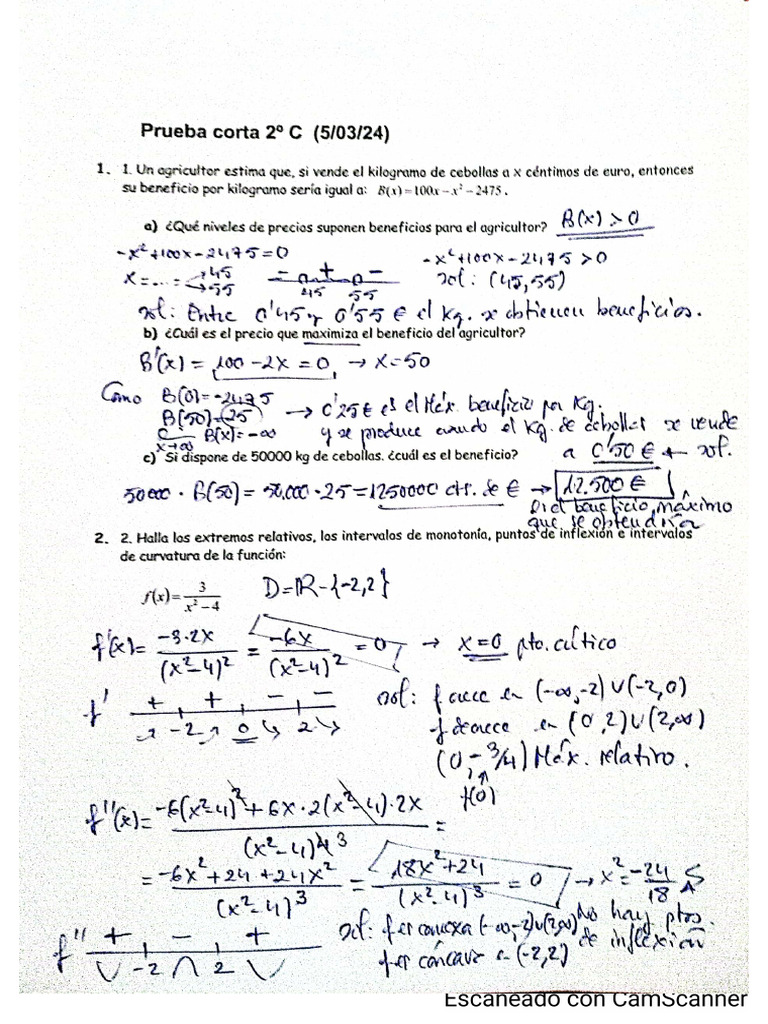 Prueba corta 2º C (5/03/24)
1. 1. Un agricultor estima que, si vende el kilogramo de cebollas a x céntimos de euro, entonces
su beneficio por kilogramo sería igual a: B(x)=100x−x²−2475.
a) ¿Qué niveles de precios suponen beneficios para el agricultor? B(x)>0
-x²+100x-2475=0
-x²+100x-2475>0
x=...= 45
55
- + -
45 55
sol: (45,55)
sol: Entre 0'45 y 0'55 € el Kg. se obtienen beneficios.
b) ¿Cuál es el precio que maximiza el beneficio del agricultor?
B'(x)=100-2x=0, → x=50
Como B(0)=-2475
B(50)=25 → 0'25€ es el Máx. beneficio por Kg.
B(x)=-∞ y se produce cuando el Kg. de cebollas se vende
x→∞
a 0'50 € ← sol.
c) Si dispone de 50000 kg de cebollas. ¿cuál es el beneficio?
50000 · B(50)=50.000·25=1250000 cts. de € → 12.500 €
el beneficio máximo
que se obtendría
2. 2. Halla los extremos relativos, los intervalos de monotonía, puntos de inflexión e intervalos
de curvatura de la función:
f(x)=3/(x²−4) D=ℝ-{-2,2}
f'(x)= -3·2x/(x²-4)² = -6x/(x²-4)² =0 → x=0 pto. crítico
f' + + - -
-2 0 2
sol: f crece en (-∞,-2)∪(-2,0)
f decrece en (0,2)∪(2,∞)
(0,-3/4) Máx. relativo.
f(0)
f''(x)= -6(x²-4)²+6x·2(x²-4)·2x/(x²-4)⁴ 3 =
= -6x²+24+24x²/(x²-4)³ = 18x²+24/(x²-4)³ =0 → x²=-24/18
No hay ptos.
de inflexión
f'' + - +
-2 2
sol: f es convexa (-∞,-2)∪(2,∞)
f es cóncava en (-2,2)
Escaneado con CamScanner